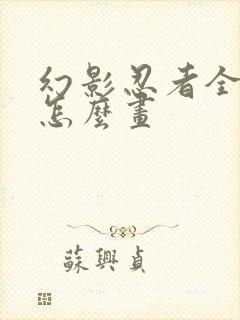 幻影忍者全
怎麼畫
蘇興貞